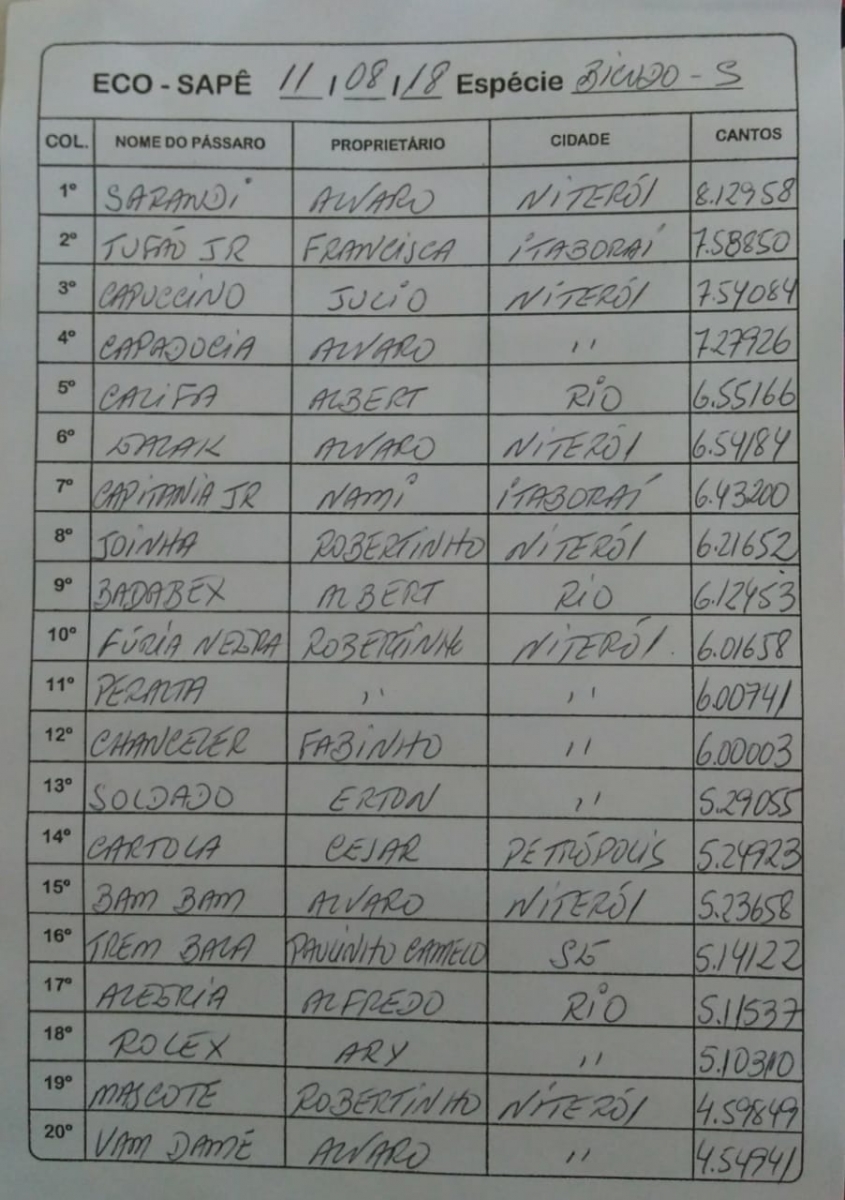 ECO - SAPÊ 11 / 08 / 18 Espécie BICUDO - S
COL. NOME DO PÁSSARO PROPRIETÁRIO CIDADE CANTOS
1º SARANDI ALVARO NITERÓI 8.12958
2º TUFÃO JR FRANCISCA ITABORAÍ 7.58850
3º CAPUCCINO JULIO NITERÓI 7.54084
4º CAPADOCIA ALVARO '' 7.27926
5º CALIFA ALBERT RIO 6.55166
6º GALAK ALVARO NITERÓI 6.54184
7º CAPITANIA JR NAMI ITABORAÍ 6.43200
8º JOINHA ROBERTINHO NITERÓI 6.21652
9º BADABEX ALBERT RIO 6.12453
10º FÚRIA NEGRA ROBERTINHO NITERÓI. 6.01658
11º PERALTA '' '' 6.00741
12º CHANCELER FABINHO '' 6.00003
13º SOLDADO ERTON '' 5.29055
14º CARTOLA CESAR PETRÓPOLIS 5.24923
15º BAM BAM ALVARO NITERÓI 5.23658
16º TREM BALA PAULINHO CAMELO SG 5.14122
17º ALEGRIA ALFREDO RIO 5.11537
18º ROLEX ARY '' 5.10310
19º MASCOTE ROBERTINHO NITERÓI 4.59849
20º VAM DAMÉ ALVARO '' 4.54941